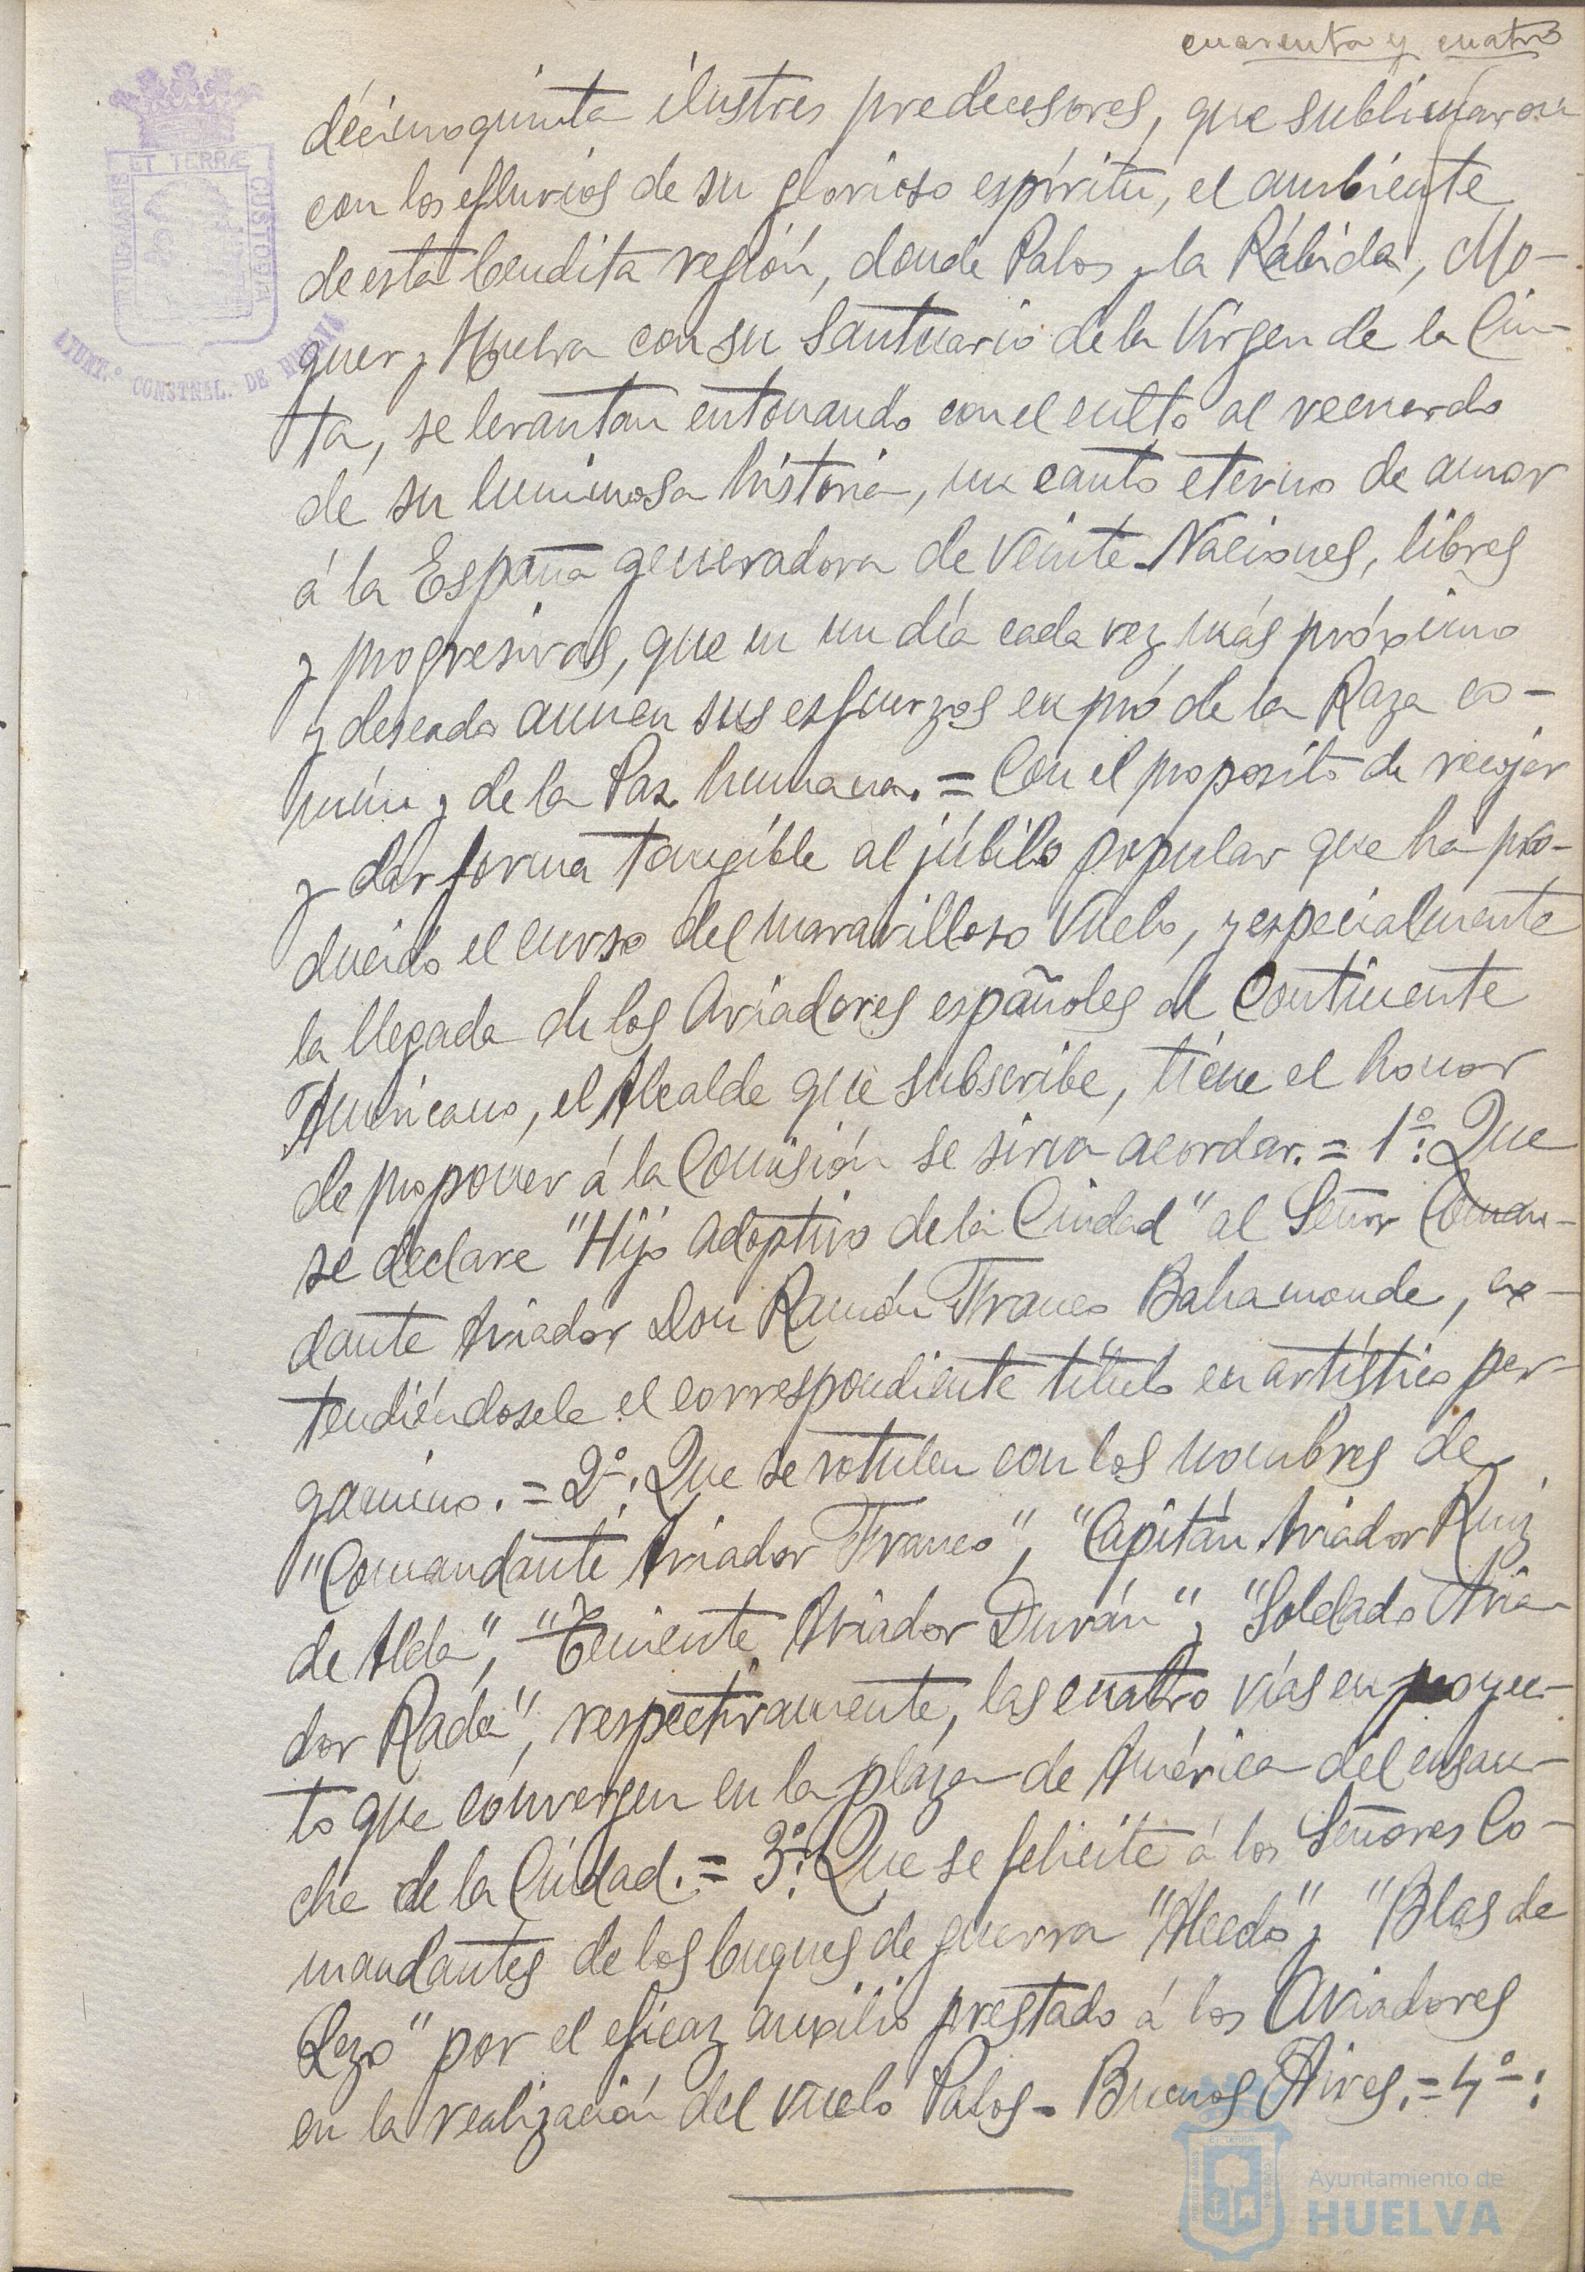 cuarenta y cuatro
décimoquinta ilustres predecesores, que sublimaron
con los efluvios de su glorioso espíritu, el ambiente
de esta bendita región, donde Palos y la Rábida, Mo-
guer y Huelva con su Santuario de la Virgen de la Cin-
ta, se levantan entonando con el culto al recuerdo
de su luminosa historia, un canto eterno de amor
á la España generadora de veinte Naciones, libres
y progresivas, que en un día cada vez más próximo
y deseado aunen sus esfuerzos en pró de la Raza co-
mún y de la Paz humana. = Con el proposito de recojer
y dar forma tangible al júbilo popular que ha pro-
ducido el curso del maravilloso Vuelo, y especialmente
la llegada de los Aviadores españoles al Continente
Americano, el Alcalde que subscribe, tiene el honor
de proponer á la Comisión se sirva acordar. = 1º: Que
se declare "Hijo adoptivo de la Ciudad" al Señor Coman-
dante Aviador Don Ramón Franco Bahamonde, ex-
tendiéndosele el correspondiente título en artístico per-
gamino. = 2º: Que se rotulen con los nombres de
"Comandante Aviador Franco", "Capitán Aviador Ruiz
de Alda", "Teniente Aviador Durán" y "Soldado Avia-
dor Rada", respectivamente, las cuatro vías en proyec-
to que convergen en la plaza de América del ensan-
che de la Ciudad. = 3º: Que se felicite á los Señores Co-
mandantes de los buques de guerra "Alsedo" y "Blas de
Lezo" por el eficaz auxilio prestado á los Aviadores
en la realización del vuelo Palos-Buenos Aires. = 4º:
ET TERRÆ CUSTODIA
PORTUS MARIS
AYUNT.º CONSTNAL. DE HUELVA
Ayuntamiento de
HUELVA